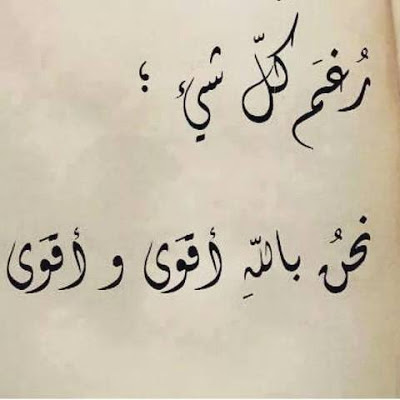 رُغم كلّ شيء ؛
نحنُ باللّهِ أقوَى و أقوَى